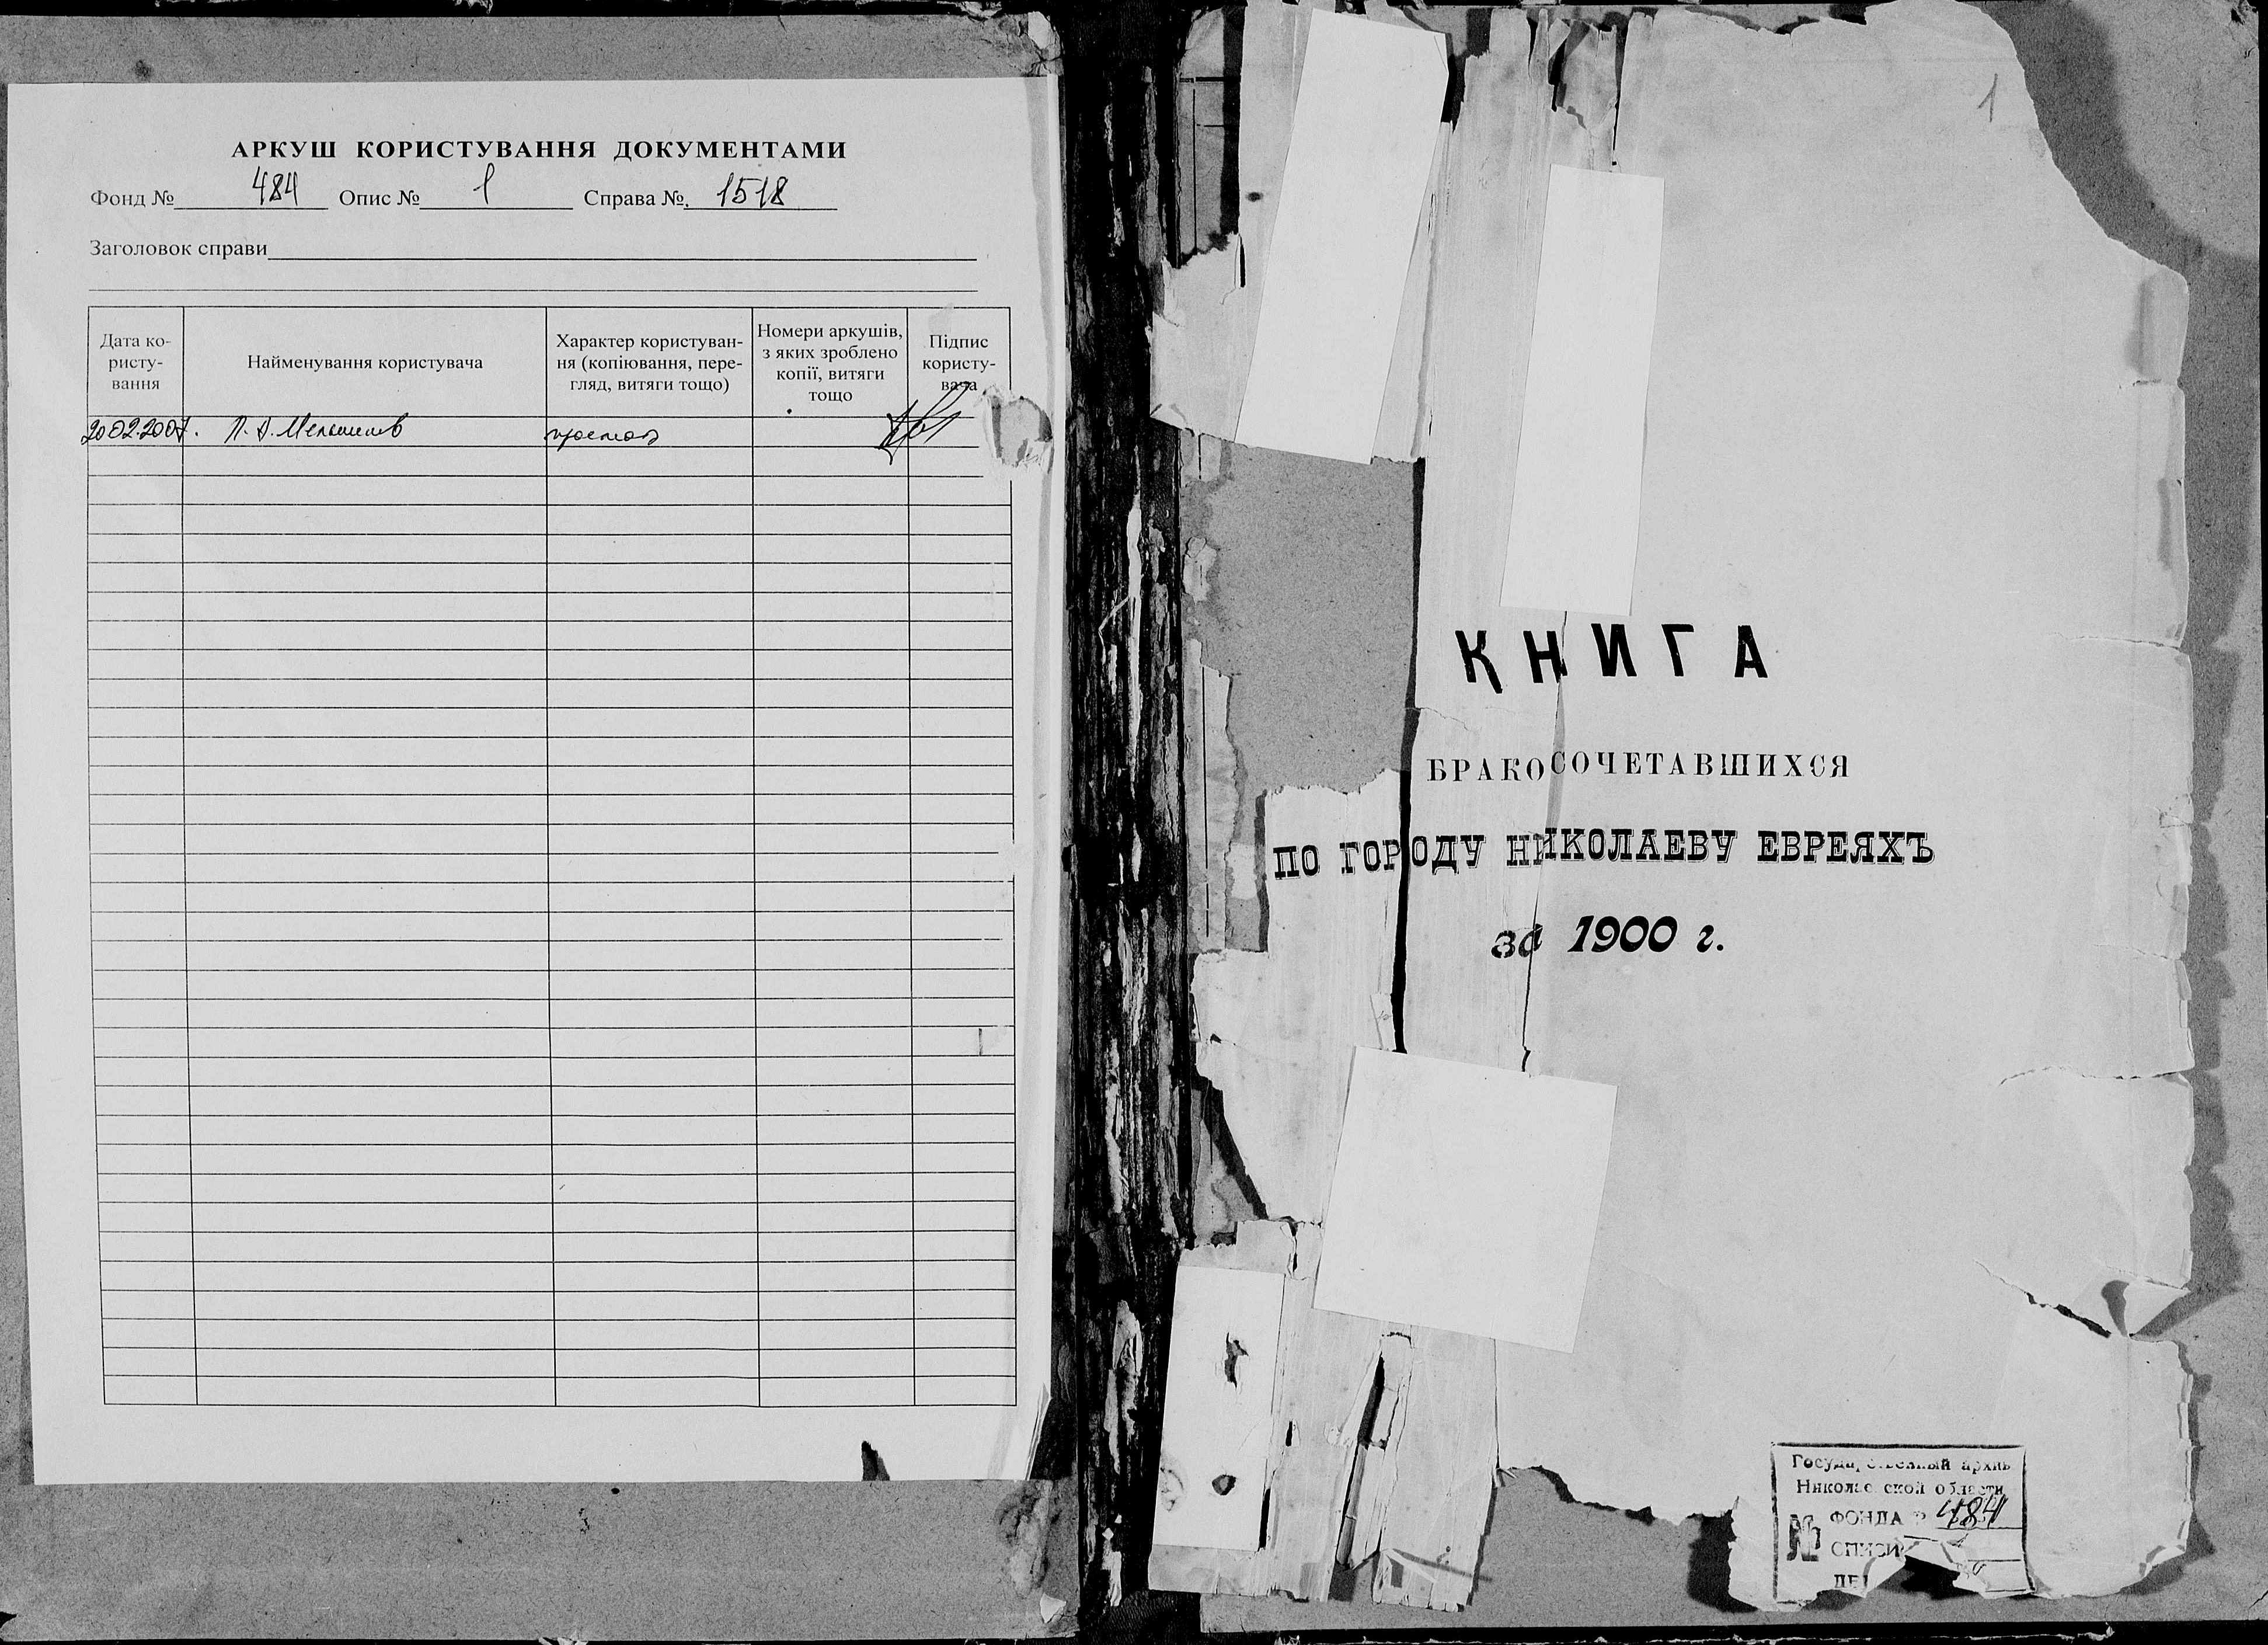 АРКУШ КОРИСТУВАННЯ ДОКУМЕНТАМИ
Фонд № 484 Опис № 1 Справа № 1518
Заголовок справи
Дата ко-
ристу-
вання
Найменування користувача
Характер користуван-
ня (копіювання, пере-
гляд, витяги тощо)
Номери аркушів,
з яких зроблено
копії, витяги
тощо
Підпис
користу-
вача
20.02.2007.
1
КНИГА
БРАКОСОЧЕТАВШИХСЯ
ПО ГОРОДУ НИКОЛАЕВУ ЕВРЕЯХЪ
за 1900 г.
Государственный архив
Николаевской области
№ ФОНДА 484